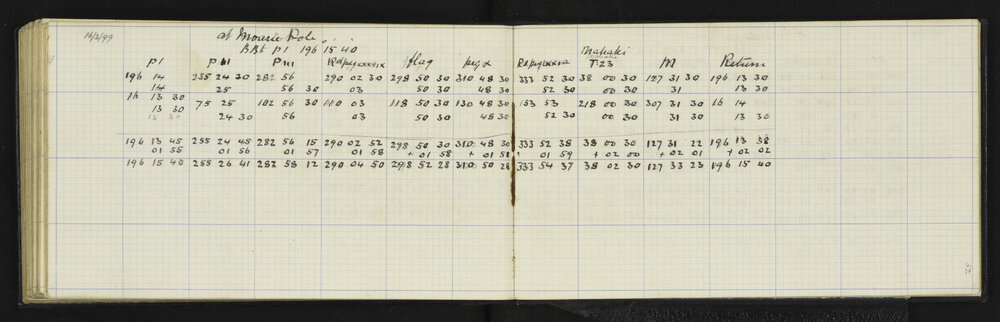 16/3/99
at Mouric Pole . . .
BBt P1 196 15 40
Mahaki
P1 P11 P111 Rdpgcxxxix flag peg x Rdpegxxxva T.23 M Return
196 14 255 24 30 282 56 290 02 30 298 50 30 310 48 30 333 52 30 38 00 30 127 31 30 196 13 30
14 25 56 30 03 50 30 48 30 52 30 00 30 31 13 30
16 13 30 75 25 102 56 30 110 03 118 50 30 130 48 30 153 53 218 00 30 307 31 30 16 14
13 30 24 30 56 03 50 30 48 30 52 30 00 30 31 30 13 30
13 30
196 13 45 255 24 45 282 56 15 290 02 52 298 50 30 310 48 30 333 52 38 38 00 30 127 31 22 196 13 38
01 55 01 56 01 57 01 58 + 01 58 + 01 58 01 59 + 02 00 + 02 01 + 02 02
196 15 40 255 26 41 282 58 12 290 04 50 298 52 28 310 50 28 333 54 37 38 02 30 127 33 23 196 15 40
25